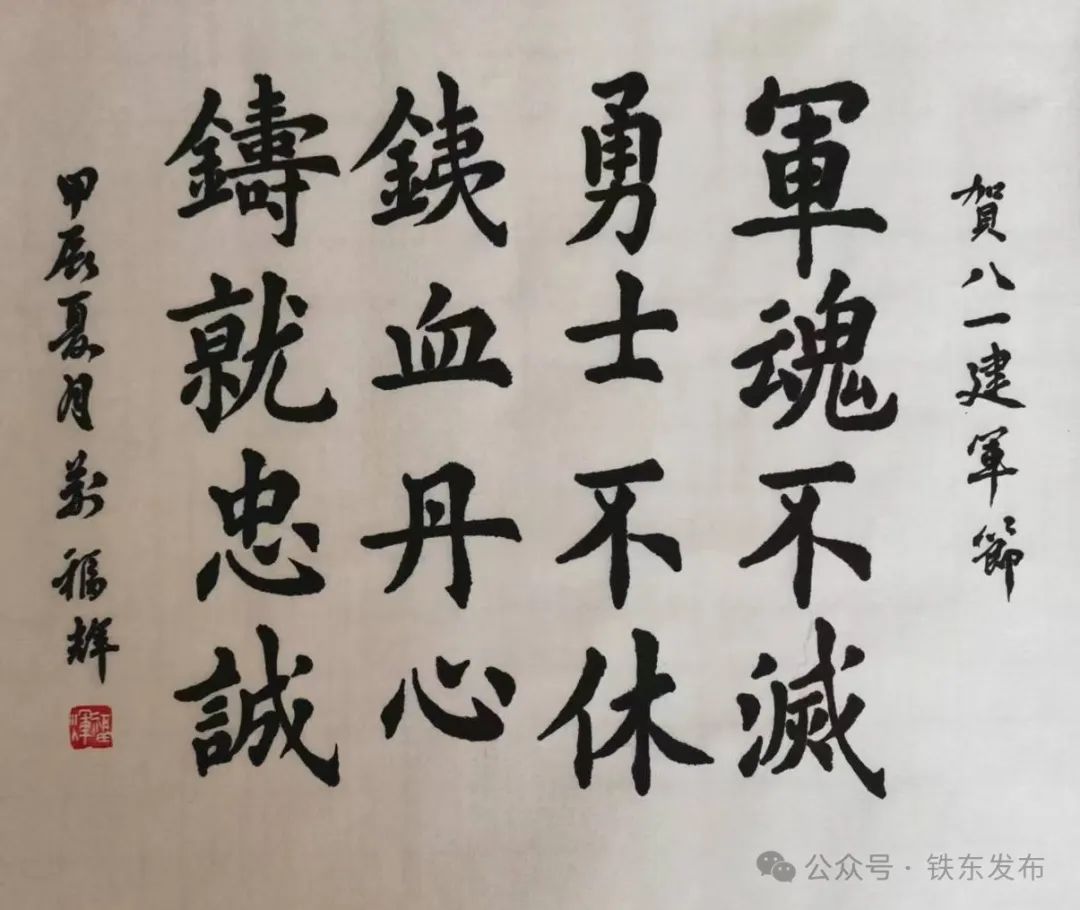 賀八一建軍節
軍魂不滅
勇士不休
銕血丹心
鑄就忠誠
甲辰夏月 福輝
公众号·铁东发布